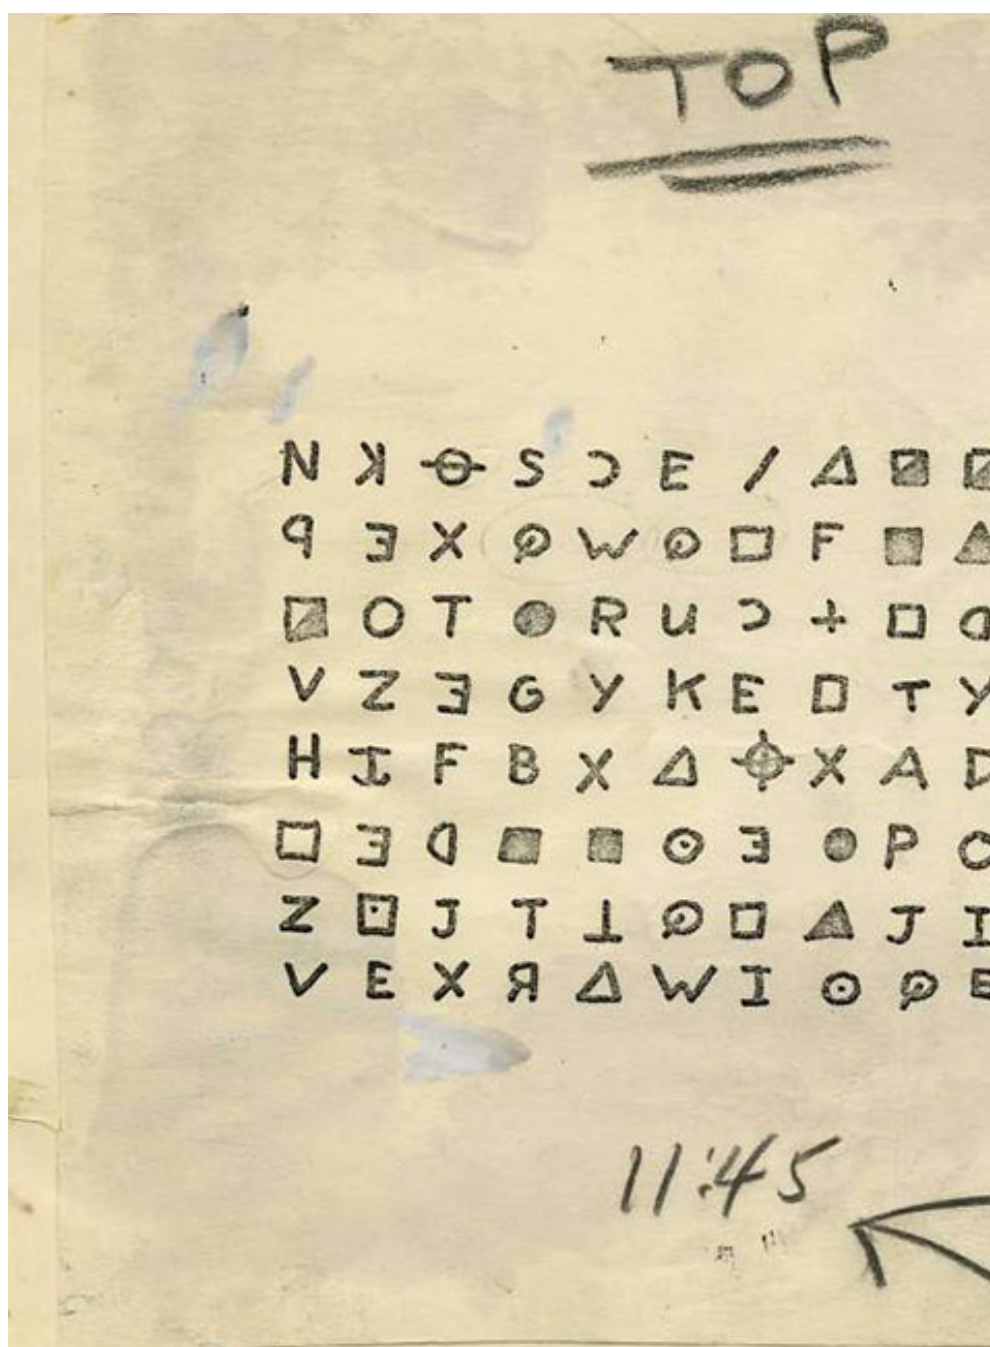 TOP
N ꓘ ⊖ S Ɔ E / △ ◪ ◪
ꟼ Ǝ X ҩ W ҩ □ F ■ ▲
◪ O T ● R U Ɔ + □ ᗡ
V Z Ǝ G Y K E □ T Y
H I F B X △ ⌖ X A D
□ Ǝ ᗡ ■ ■ ⊙ Ǝ ● P
Z ⊡ J T ⊥ ҩ □ ▲ J I
V E X Я △ W I ⊙ ҩ E
11:45